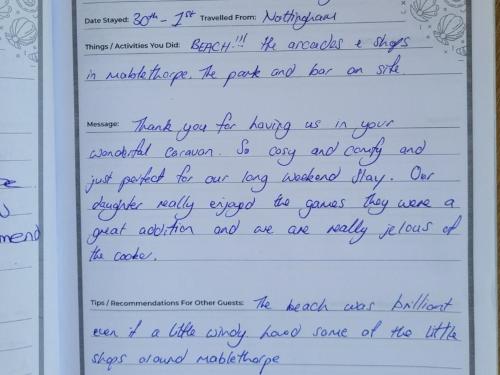 Date Stayed: 30th - 1st Travelled From: Nottingham
Things / Activities You Did: BEACH!!! the arcades & shops
in mablethorpe. The park and bar on site
Message: Thank you for having us in your
wonderful caravan. So cosy and comfy and
just perfect for our long weekend stay. Our
daughter really enjoyed the games they were a
great addition and we are really jelous of
the cooker.
Tips / Recommendations For Other Guests: The beach was brilliant
even if a little windy. Loved some of the little
shops around mablethorpe
mmend